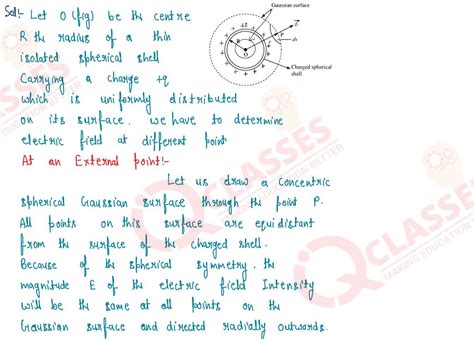 Sol:- Let O (fig) be the centre
R the radius of a thin
isolated spherical shell
Carrying a charge +q
which is uniformly distributed
on its surface. we have to determine
electric field at different point
At an External point:-
Let us draw a concentric
spherical Gaussian surface through the point P.
All points on this surface are equidistant
from the surface of the charged shell.
Because of the spherical symmetry, the
magnitude E of the electric field Intensity
will be the same at all points on the
Gaussian surface and directed radially outwards.
Gaussian surface
P
ds
R
O
Charged spherical
shell
IQ CLASSES
MAKING EDUCATION BETTER